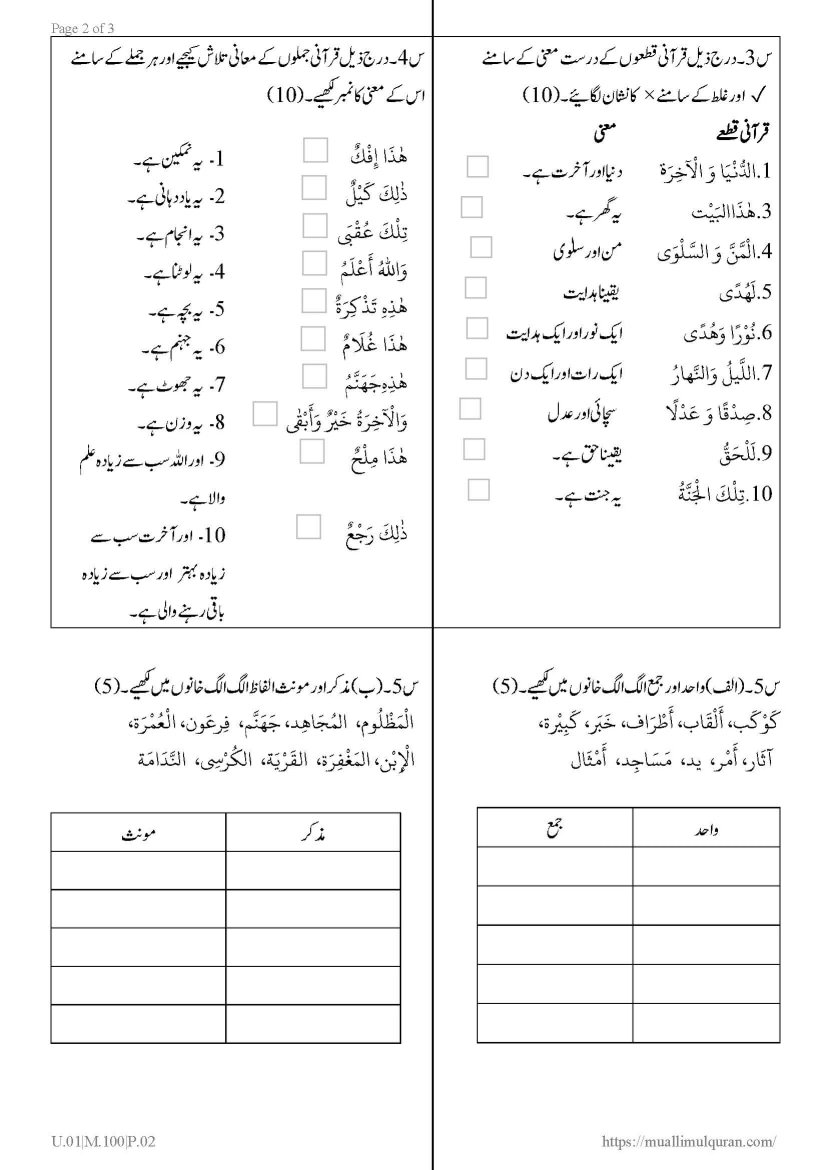 Page 2 of 3
س3۔ درج ذیل قرآنی قطعوں کے درست معنی کے سامنے
✓ اور غلط کے سامنے × کا نشان لگائیے۔ (10)
قرآنی قطعے معنی
1. الدُّنْيَا وَ الْآخِرَة دنیا اور آخرت ہے۔
3. هٰذَا الْبَيْت یہ گھر ہے۔
4. الْمَنَّ وَ السَّلْوَى من اور سلوی
5. لَهُدًى یقینا ہدایت
6. نُوْرًا وَهُدًى ایک نور اور ایک ہدایت
7. اللَّيلُ وَالنَّهارُ ایک رات اور ایک دن
8. صِدْقًا وَ عَدْلًا سچائی اور عدل
9. لَلْحَقُّ یقینا حق ہے۔
10. تِلْكَ الْجَنَّةُ یہ جنت ہے۔
س4۔ درج ذیل قرآنی جملوں کے معانی تلاش کیجیے اور ہر جملے کے سامنے
اس کے معنی کا نمبر لکھیے۔ (10)
هٰذَا إِفْكٌ 1- یہ نمکین ہے۔
ذٰلِكَ كَيْلٌ 2- یہ یاد دہانی ہے۔
تِلْكَ عُقْبَى 3- یہ انجام ہے۔
وَاللهُ أَعْلَمُ 4- یہ لوٹنا ہے۔
هٰذِهِ تَذْكِرَةٌ 5- یہ بچہ ہے۔
هٰذَا غُلَامٌ 6- یہ جہنم ہے۔
هٰذِهِ جَهَنَّمُ 7- یہ جھوٹ ہے۔
وَالْآخِرَةُ خَيْرٌ وَأَبْقٰى 8- یہ وزن ہے۔
هٰذَا مِلْحٌ 9- اور اللہ سب سے زیادہ علم
والا ہے۔
ذٰلِكَ رَجْعٌ 10- اور آخرت سب سے
زیادہ بہتر اور سب سے زیادہ
باقی رہنے والی ہے۔
س5۔ (الف) واحد اور جمع الگ الگ خانوں میں لکھیے۔ (5)
كَوْكَب، أَلْقَاب، أَطْرَاف، خَبَر، كَبِيْرة،
آثار، أَمْر، يد، مَسَاجِد، أَمْثَال
واحد جمع
س5۔ (ب) مذکر اور مونث الفاظ الگ الگ خانوں میں لکھیے۔ (5)
الْمَظْلُوم، المُجَاهِد، جَهَنَّم، فِرعَون، الْعُمْرَة،
الْإِبْن، المَغْفِرَة، القَرْيَة، الكُرْسِى، النَّدَامَة
مذکر مونث
U.01|M.100|P.02
https://muallimulquran.com/